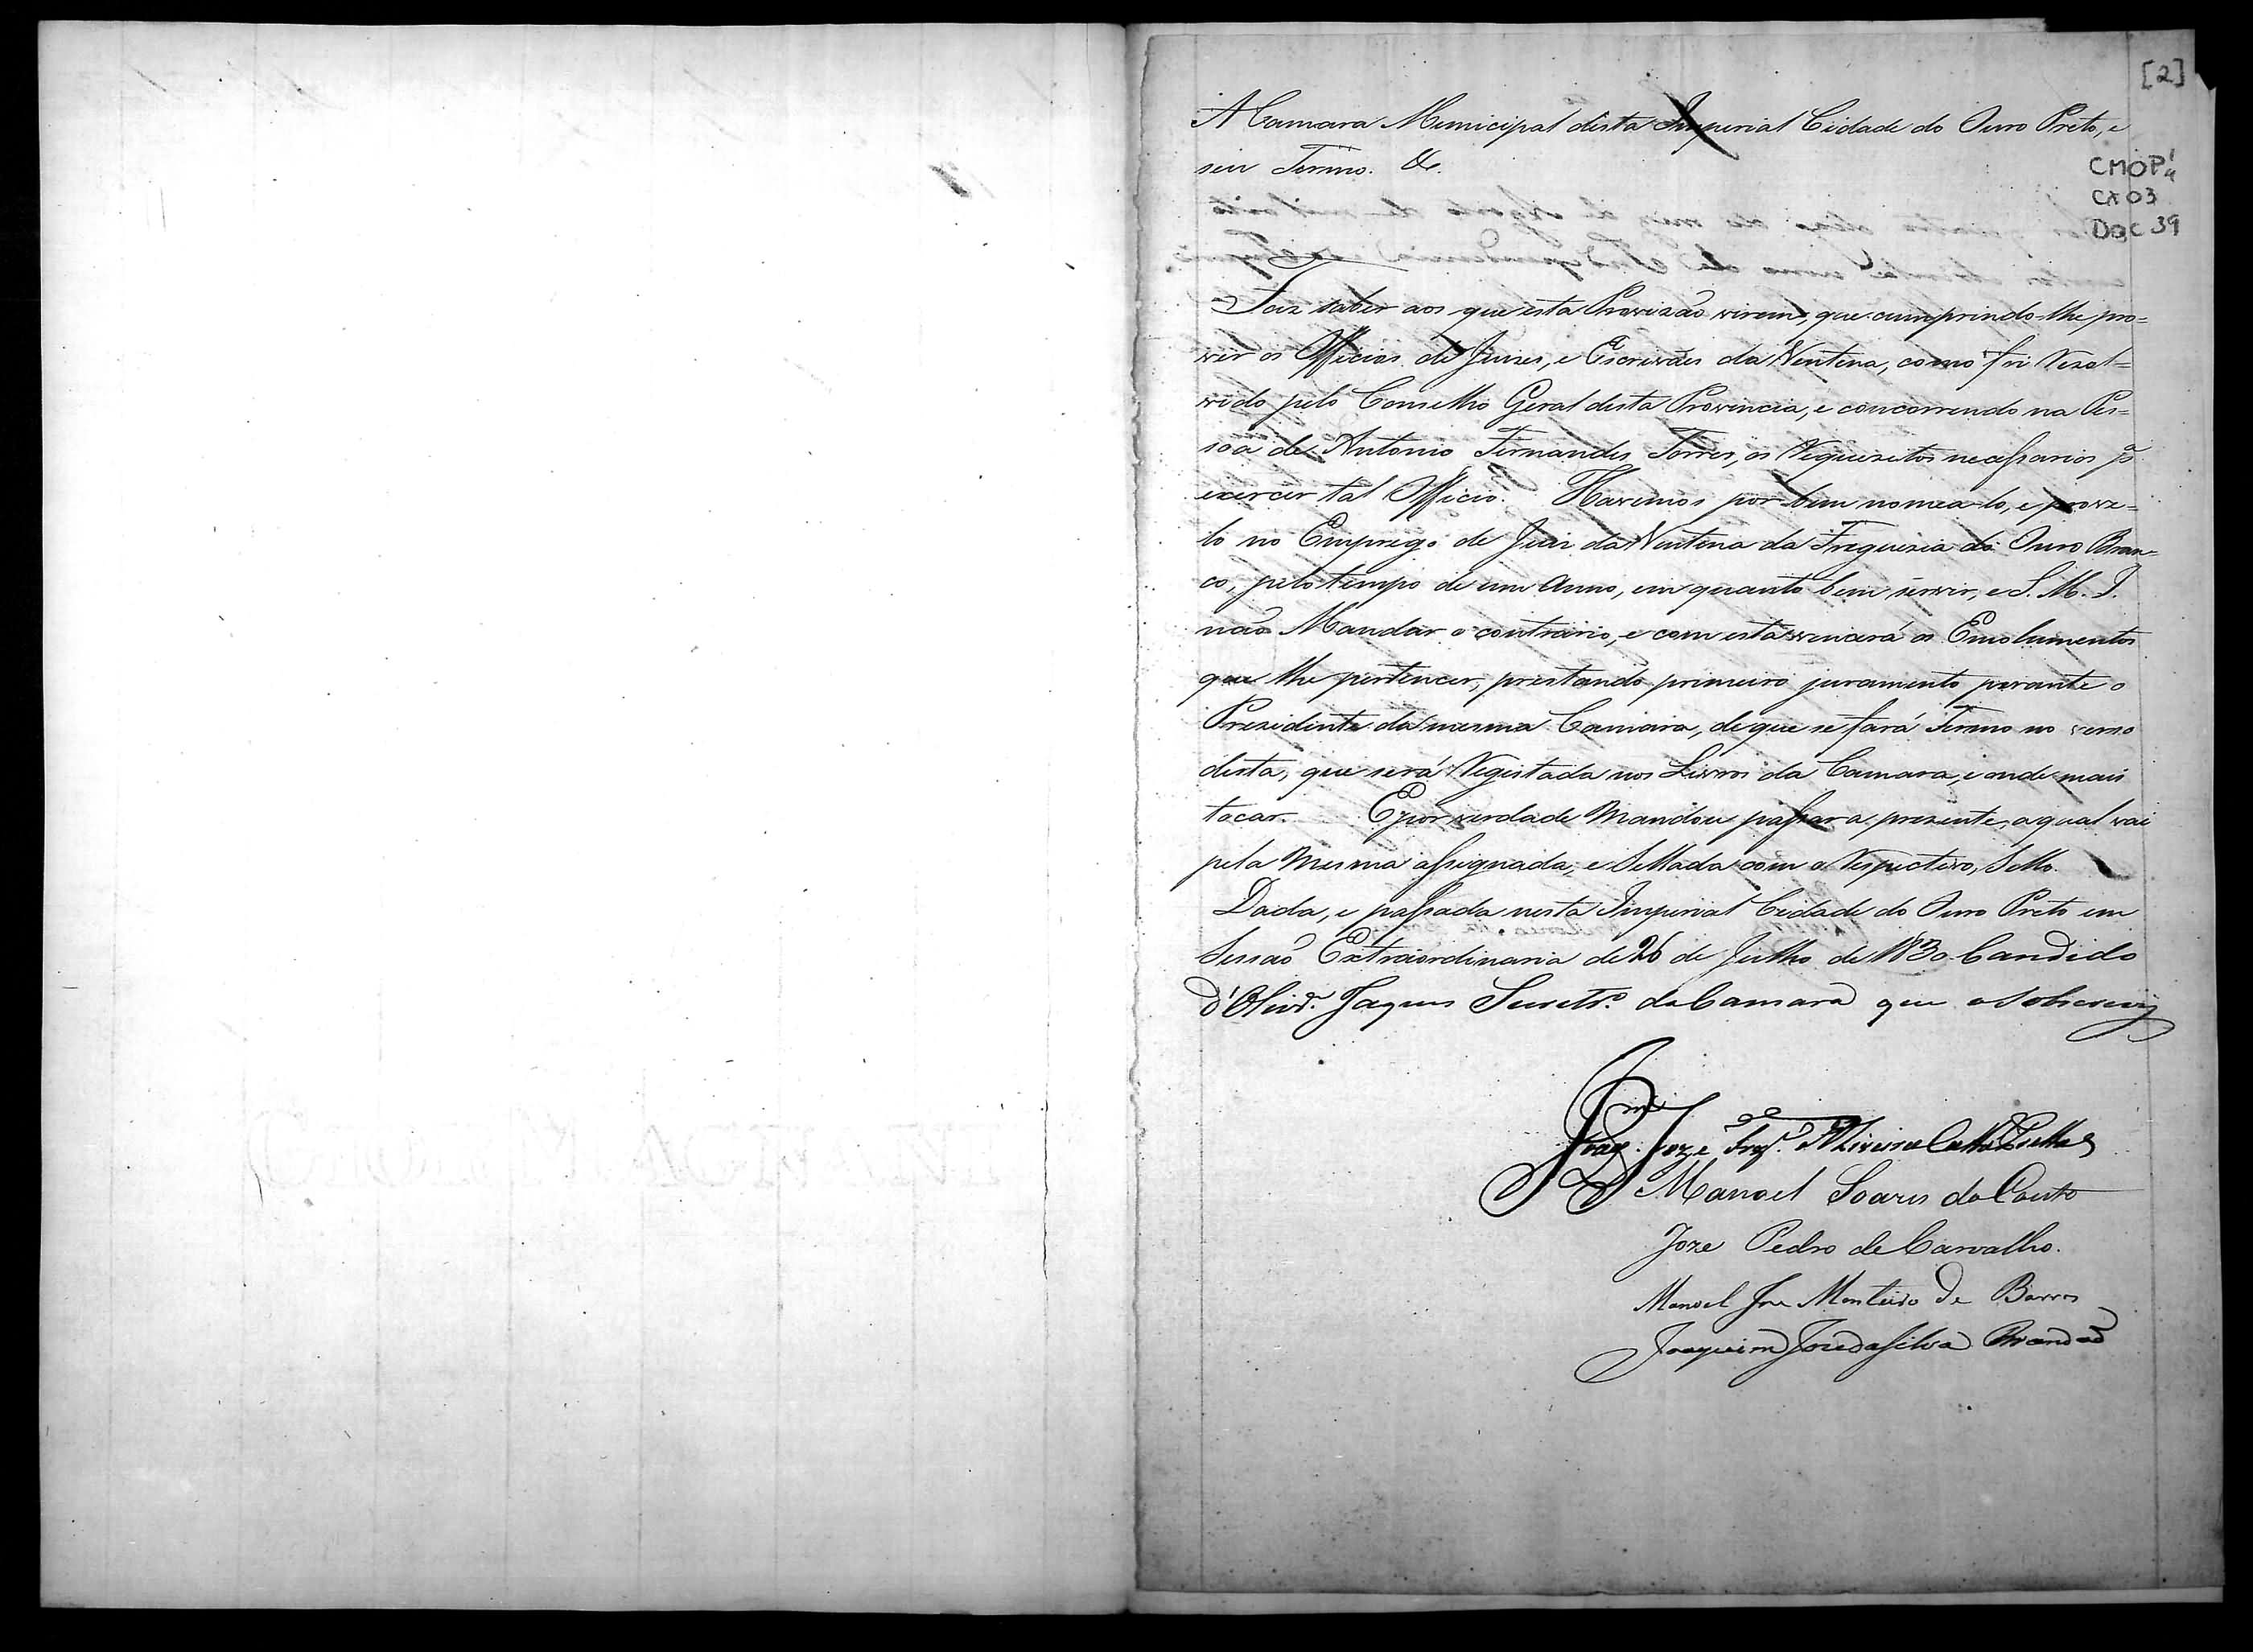 [2]
A Camara Municipal desta Imperial Cidade do Ouro Preto, e
seu Termo. &c.
CMOP
CX 03
Doc 39
Faz saber aos que esta Provizaõ virem, que cumprindo-lhe pro=
ver os Officios de Juizes, e Escrivães da Ventena, como foi Rezol=
vido pelo Conselho Geral desta Provincia, e concorrendo na Pes=
soa de Antonio Fernandes Torres, os Requezitos necessarios pª
exercer tal Officio. Havemos por bem nomea-lo, e prove=
lo no Emprego de Juiz da Ventena da Freguezia do Ouro Bran=
co, pelo tempo de um Anno, em quanto bem servir, e S. M. I.
naõ Mandar o contrario, e com esta vencerá os Emolumentos
que lhe pertencer, prestando primeiro juramento perante o
Prezidente da mesma Camara, de que se fará Termo no verso
desta, que será Registada nos Livros da Camara, e onde mais
tocar. E por verdade Mandou passar a prezente, a qual vai
pela Mesma assignada, e Sellada com o Respectivo Sello.
Dada, e passada nesta Imperial Cidade do Ouro Preto em
Sessaõ Extraordinaria de 26 de Julho de 1830. Candido
d'Olivrª. Jaques Secretrº. da Camara que o Sobscrevy
Joze
Manoel Soares do Couto
Joze Pedro de Carvalho.
Manoel Joze Monteiro de Barros
Joaquim Joze da Silva Brandaõ